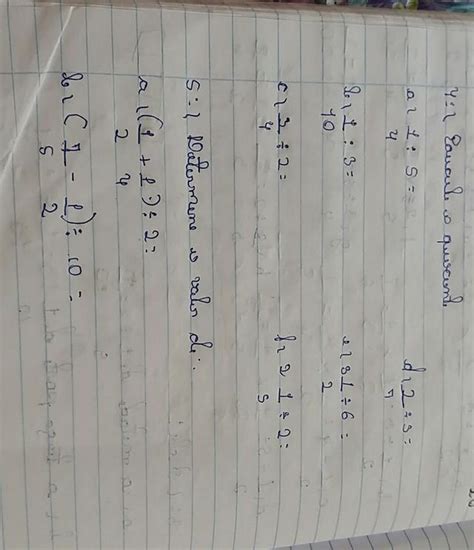 4-) Calcule o quociente
a) 1/4 : 5 = d) 2/7 ÷ 3 =
b) 1/10 : 3 = e) 3 1/2 ÷ 6 =
c) 3/4 ÷ 2 = f) 2 1/5 ÷ 2 =
5-) Determine o valor de:
a) (1/2 + 1/4) ÷ 2 =
b) (7/5 - 1/2) ÷ 10 =